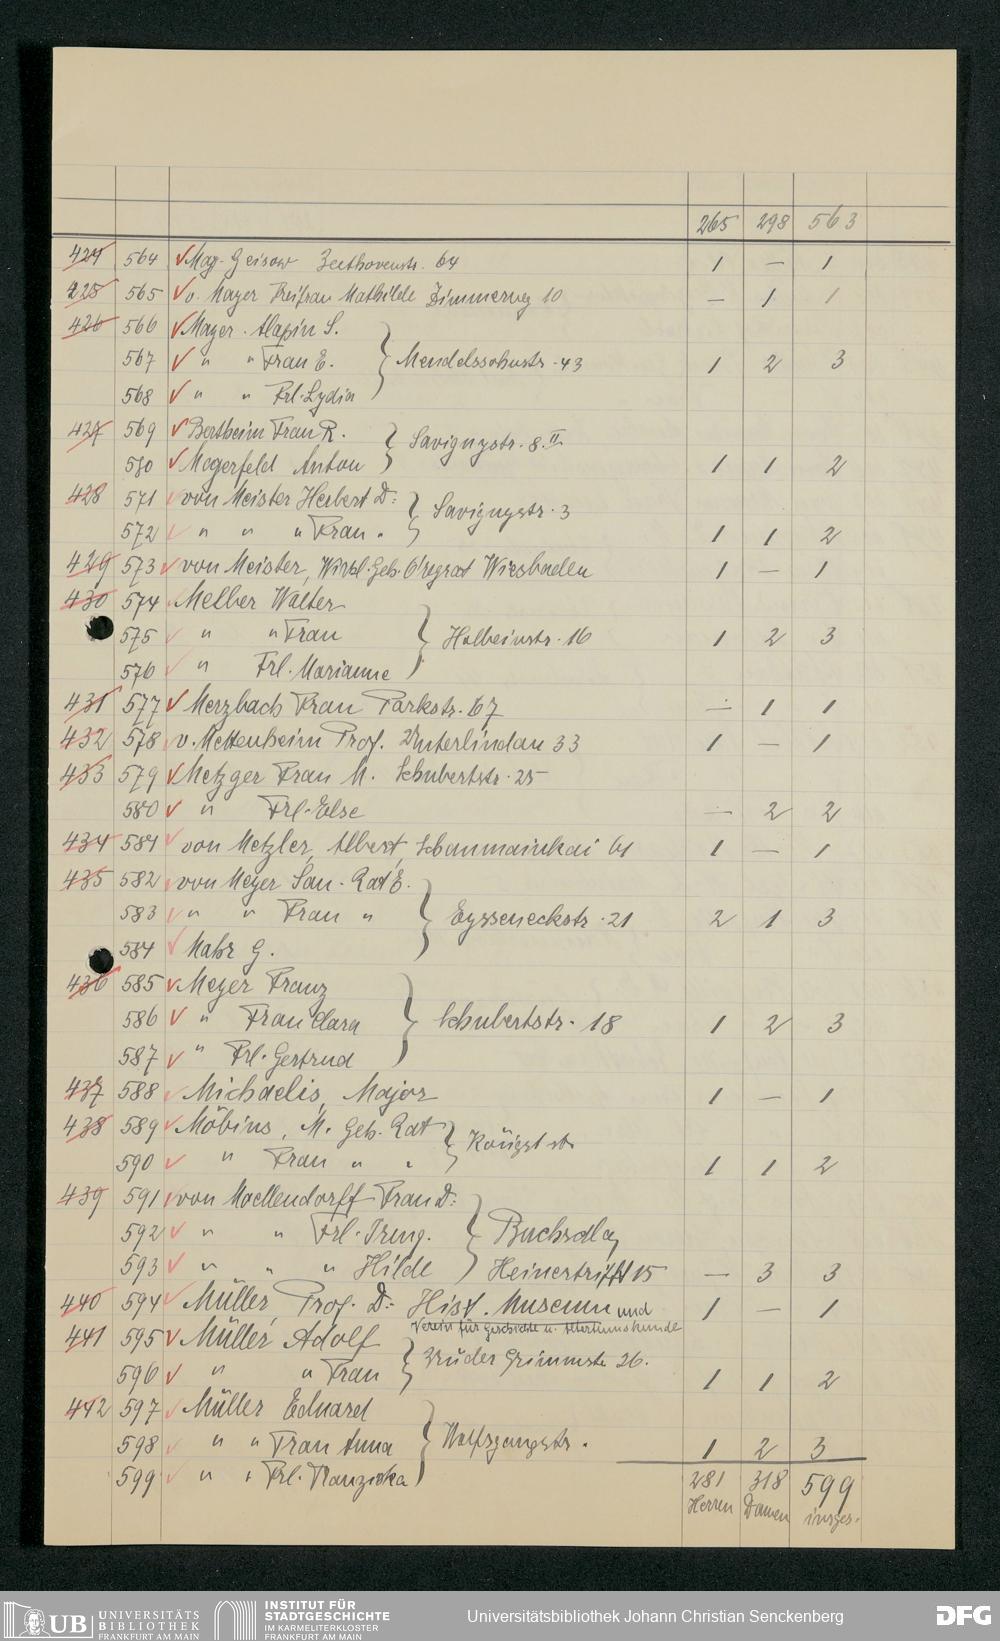 265 298 563
424 564 May-Geisow Beethovenstr. 64 1 — 1
425 565 v. Mayer Freifrau Mathilde Zimmerweg 10 — 1 1
426 566 Mayer-Alapin S.
567 " " Frau E. Mendelssohnstr. 43 1 2 3
568 " " Frl. Lydia
427 569 Bertheim Frau R. Savignystr. 8 II
570 Megerfeld Anton 1 1 2
428 571 von Meister Herbert D: Savignystr. 3
572 " " " Frau " 1 1 2
429 573 von Meister, Wirkl. Geh. Wiesbaden 1 — 1
430 574 Melber Walter
575 " " Frau Holbeinstr. 16 1 2 3
576 " Frl. Marianne
431 577 Merzbach Frau Parkstr. 67 — 1 1
432 578 v. Mettenheim Prof. Unterlindau 33 1 — 1
433 579 Metzger Frau M. Schubertstr. 25
580 " Frl. Else — 2 2
434 581 von Metzler, Albert, Schaumainkai 61 1 — 1
435 582 von Meyer San. Rat E.
583 " " Frau " Eysseneckstr. 21 2 1 3
584 Mahr G.
436 585 Meyer Franz
586 " Frau Clara Schubertstr. 18 1 2 3
587 " Frl. Gertrud
437 588 Michaelis, Major 1 — 1
438 589 Möbius, M. Geh. Rat Königst str
590 " Frau " " 1 1 2
439 591 von Moellendorff Frau D:
592 " " Frl. Buchschlag
593 " " " Hilde Heinertrifft 15 — 3 3
440 594 Müller, Prof. D: Hist. Museum und 1 — 1
Verein für Geschichte u. Altertumskunde
441 595 Müller Adolf Brüder Grimmstr. 26.
596 " " Frau 1 1 2
442 597 Müller Eduard
598 " " Frau Anna Wolfsgangstr. 1 2 3
599 " " Frl. Franziska 281 318 599
Herren Damen insges.
UB UNIVERSITÄTS
BIBLIOTHEK
FRANKFURT AM MAIN
INSTITUT FÜR
STADTGESCHICHTE
IM KARMELITERKLOSTER
FRANKFURT AM MAIN
Universitätsbibliothek Johann Christian Senckenberg
DFG